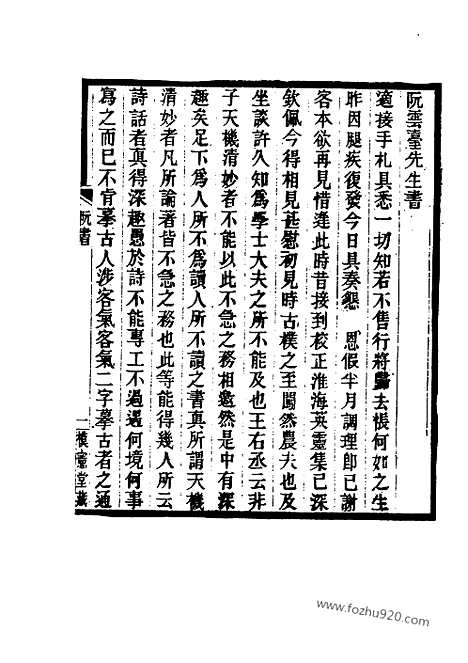 阮雲臺先生書
適接手札具悉一切知若不售行將歸去悵何如之生
昨因腿疾復發今日具奏懇 恩假半月調理卽已謝
客本欲再見惜違此時昔接到校正淮海英靈集已深
欽佩今得相見甚慰初見時古樸之至闇然農夫也及
坐談許久知爲學士大夫之所不能及也王右丞云非
子天機清妙者不能以此不急之務相邀然是中有深
趣矣足下爲人所不爲讀人所不讀之書眞所謂天機
清妙者凡所論著皆不急之務也此等能得幾人所云
詩話者眞得深趣愚於詩不能專工不過遇何境何事
寫之而已不肯摹古人涉客氣客氣二字摹古者之通
阮書
一
樸堂藏
www.fozhu920.com